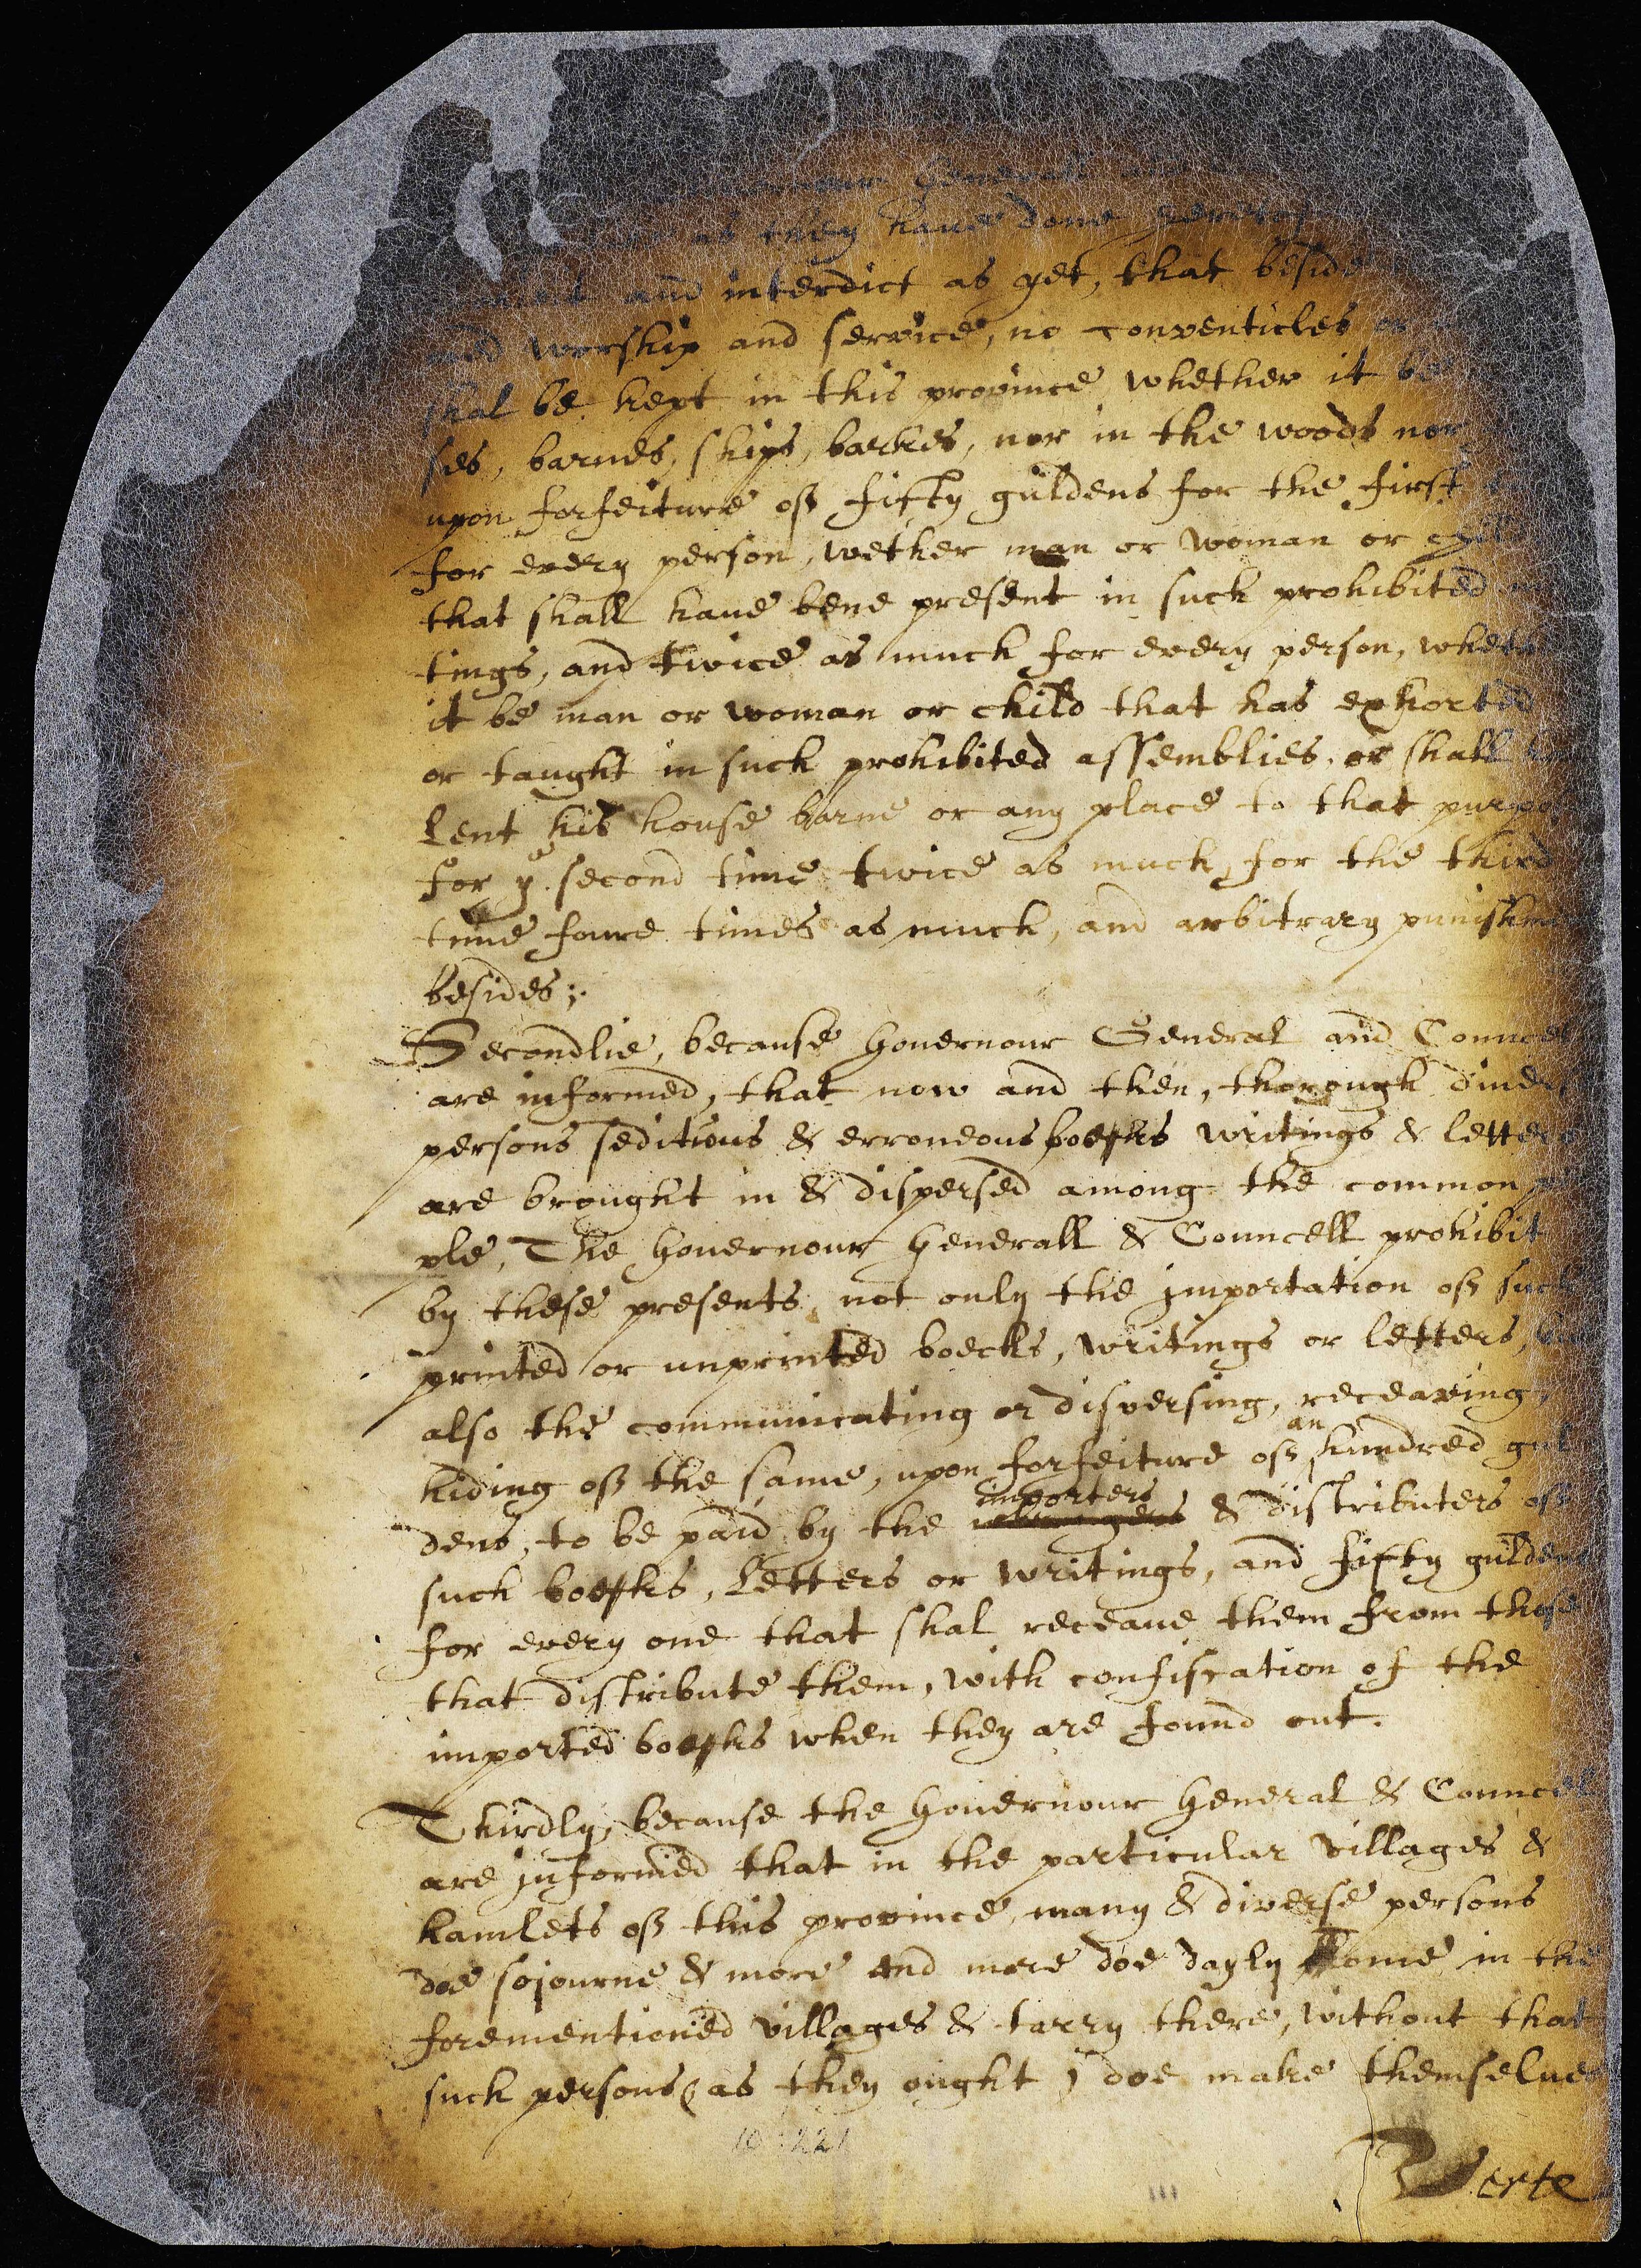 Generall
as they haue done
and interdict as yet, that beside
worship and service, no conventicles or
shal be kept in this province whether it be
ses, barnes, ships, barkes, nor in the woods nor
upon forfeiture off fifty guldens for the first
for every person, wether man or woman or
that shall haue bene present in such prohibited
tings, and twice as much for every person, wheth
it be man or woman or child that has exhorted
or taught in such prohibited assemblies, or shall
lent his house barne or any place to that purpo
for ye second time twice as much, for the third
time foure times as much, and arbitrary punishm
besides;.
Secondlie, because Gouernour General and Councel
are informed, that now and then, thorough diuer
persons seditious & erroneous boecks writings & letters
are brought in & dispersed among the common
ple, The Gouernour Generall & Councell prohibit
by these presents, not only the importation off such
printed or unprinted boecks, writings or letters,
also the communicating or dispersing, receaving,
hiding off the same, upon forfeiture off an hundred gul
dens, to be paid by the importers & distributers off
such boecks, Letters or writings, and fifty guldens
for every one that shal receaue them from those
that distribute them, with confiscation of the
imported boecks when they are found out.
Thirdly, because the Gouernour General & Councel
are informed that in the particular villages &
hamlets off this province, many & diverse persons
doe sojourne & more and more doe dayly come in the
forementioned villages & tarry there, without that
such persons (as they ought) doe make themselues
Verte